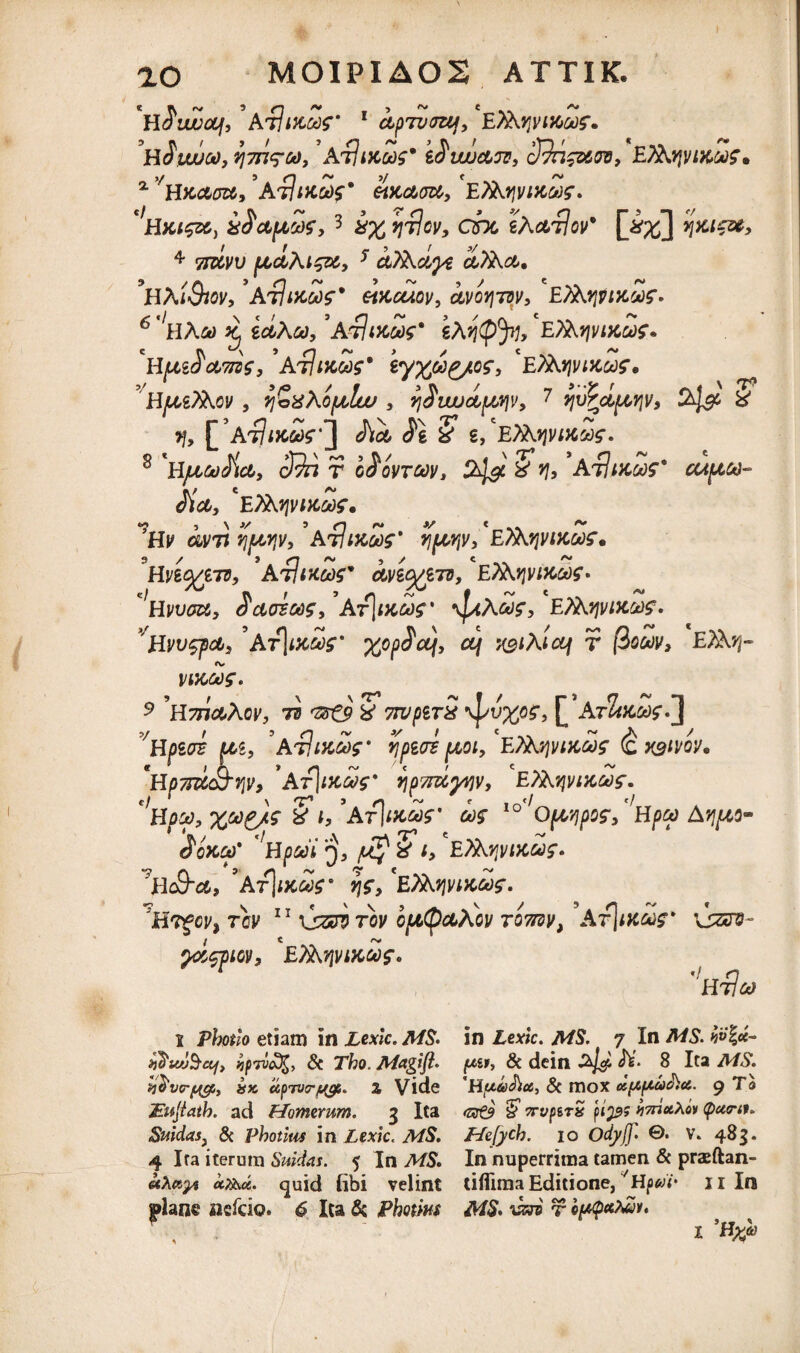 20 ΜΟΙΡΙΔΟΣ ΑΤΤΙΚ.
Ἡδῦναι, Ἀττικῶς· ¹ ἀρτῦσαι, Ἑλληνικῶς.
Ἠδύνω, ἠπίςω, Ἀττικῶς· ἐδύνατο, ἐπίςατο, Ἑλληνικῶς.
² Ἤκασα, Ἀττικῶς· εἴκασα, Ἑλληνικῶς.
Ἥκιςα, οὐδαμῶς, ³ οὐχ ἧττον, οὐκ ἔλαττον· [οὐχ] ἥκιςα,
⁴ πάνυ μάλιςα, ⁵ ἀλλάγε ἄλλα.
Ἠλίθιον, Ἀττικῶς· εἰκαῖον, ἀνόητον, Ἑλληνικῶς.
⁶ Ἥλω καὶ ἑάλω, Ἀττικῶς· ἐλήφθη, Ἑλληνικῶς.
Ἡμεδαπὸς, Ἀττικῶς· ἐγχώριος, Ἑλληνικῶς.
Ἤμελλον, ἠβουλόμην, ἠδυνάμην, ⁷ ηὐξάμην, διὰ τοῦ
η, [Ἀττικῶς·] διὰ δὲ τοῦ ε, Ἑλληνικῶς.
⁸ Ἡμωδία, ἐπὶ τῶν ὀδόντων, διὰ τοῦ η, Ἀττικῶς· αἱμω-
δία, Ἑλληνικῶς.
Ἦν ἀντὶ ἤμην, Ἀττικῶς· ἤμην, Ἑλληνικῶς.
Ἠνέχετο, Ἀττικῶς· ἀνέχετο, Ἑλληνικῶς.
Ἥνυσα, δασέως, Ἀττικῶς· ψιλῶς, Ἑλληνικῶς.
Ἤνυςρα, Ἀττικῶς· χορδαὶ, αἱ κοιλίαι τῶν βοῶν, Ἑλλη-
νικῶς.
⁹ Ἠπίαλον, τὸ πρὸ τοῦ πυρετοῦ ψύχος, [Ἀττικῶς.]
Ἤρεσέ με, Ἀττικῶς· ἤρεσέ μοι, Ἑλληνικῶς καὶ κοινόν.
Ἡρπάσθην, Ἀττικῶς· ἡρπάγην, Ἑλληνικῶς.
Ἥρω, χωρὶς τοῦ ι, Ἀττικῶς· ὡς ¹⁰ Ὅμηρος, Ἥρω Δημο-
δόκω· Ἥρωϊ δὲ, μετὰ τοῦ ι, Ἑλληνικῶς.
Ἦσθα, Ἀττικῶς· ἦς, Ἑλληνικῶς.
Ἦτρον, τὸν ¹¹ ὑπὸ τὸν ὀμφαλὸν τόπον, Ἀττικῶς· ὑπο-
γάςριον, Ἑλληνικῶς.
Ἥττω
1 Photio etiam in Lexic. MS.
ἡδύνθαι, ἠρτύσθ, & Tho. Magist.
ἥδυσμα, οὐκ ἄρτυσμα. 2 Vide
Eustath. ad Homerum. 3 Ita
Suidas, & Photius in Lexic. MS.
4 Ita iterum Suidas. 5 In MS.
ἄλαγε ἀλλά. quid sibi velint
plane nescio. 6 Ita & Photius
in Lexic. MS. 7 In MS. ηὐξά-
μεν, & dein διὰ δέ. 8 Ita MS.
Ἡμώδια, & mox ἀμμώδια. 9 Τὸ
πρὸ τοῦ πυρετοῦ ῥῖγος ἠπίαλόν φασιν.
Hesych. 10 Odyss. Θ. v. 483.
In nuperrima tamen & præstan-
tissima Editione, Ἥρωϊ· 11 In
MS. ὑπὸ τῶν ὀμφαλῶν.
1 Ἠχὼ